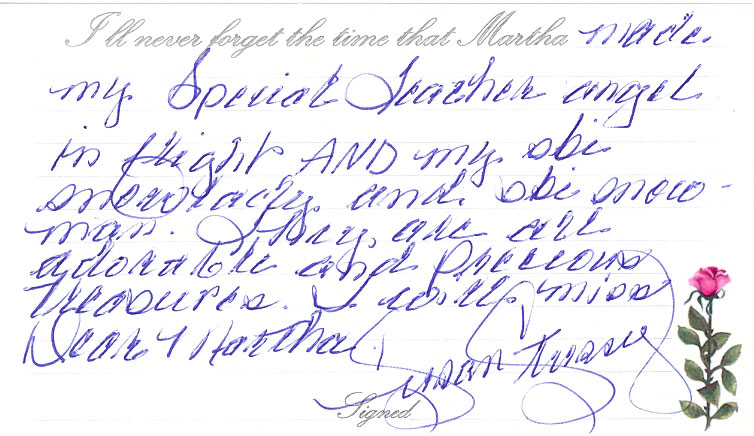 I'll never forget the time that Martha made
my Special Teacher angel
in flight AND my ski
snowlady and ski snow-
man. They are all
adorable and precious
treasures. I will miss
Dear Martha!
Susan
Signed